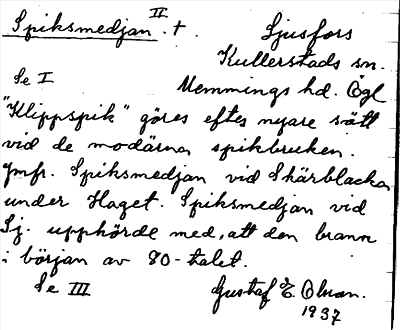 Spiksmedjan II. †. Ljusfors
Kullerstads sn.
Se I Memmings hd. Ögl
"Klippspik" göres efter nyare sätt
vid de modärna spikbruken.
Jmfr. Spiksmedjan vid Skärblacka
under Haget. Spiksmedjan vid
Lj. upphörde med, att den brann
i början av 80-talet.
Se III Gustaf E.
1937